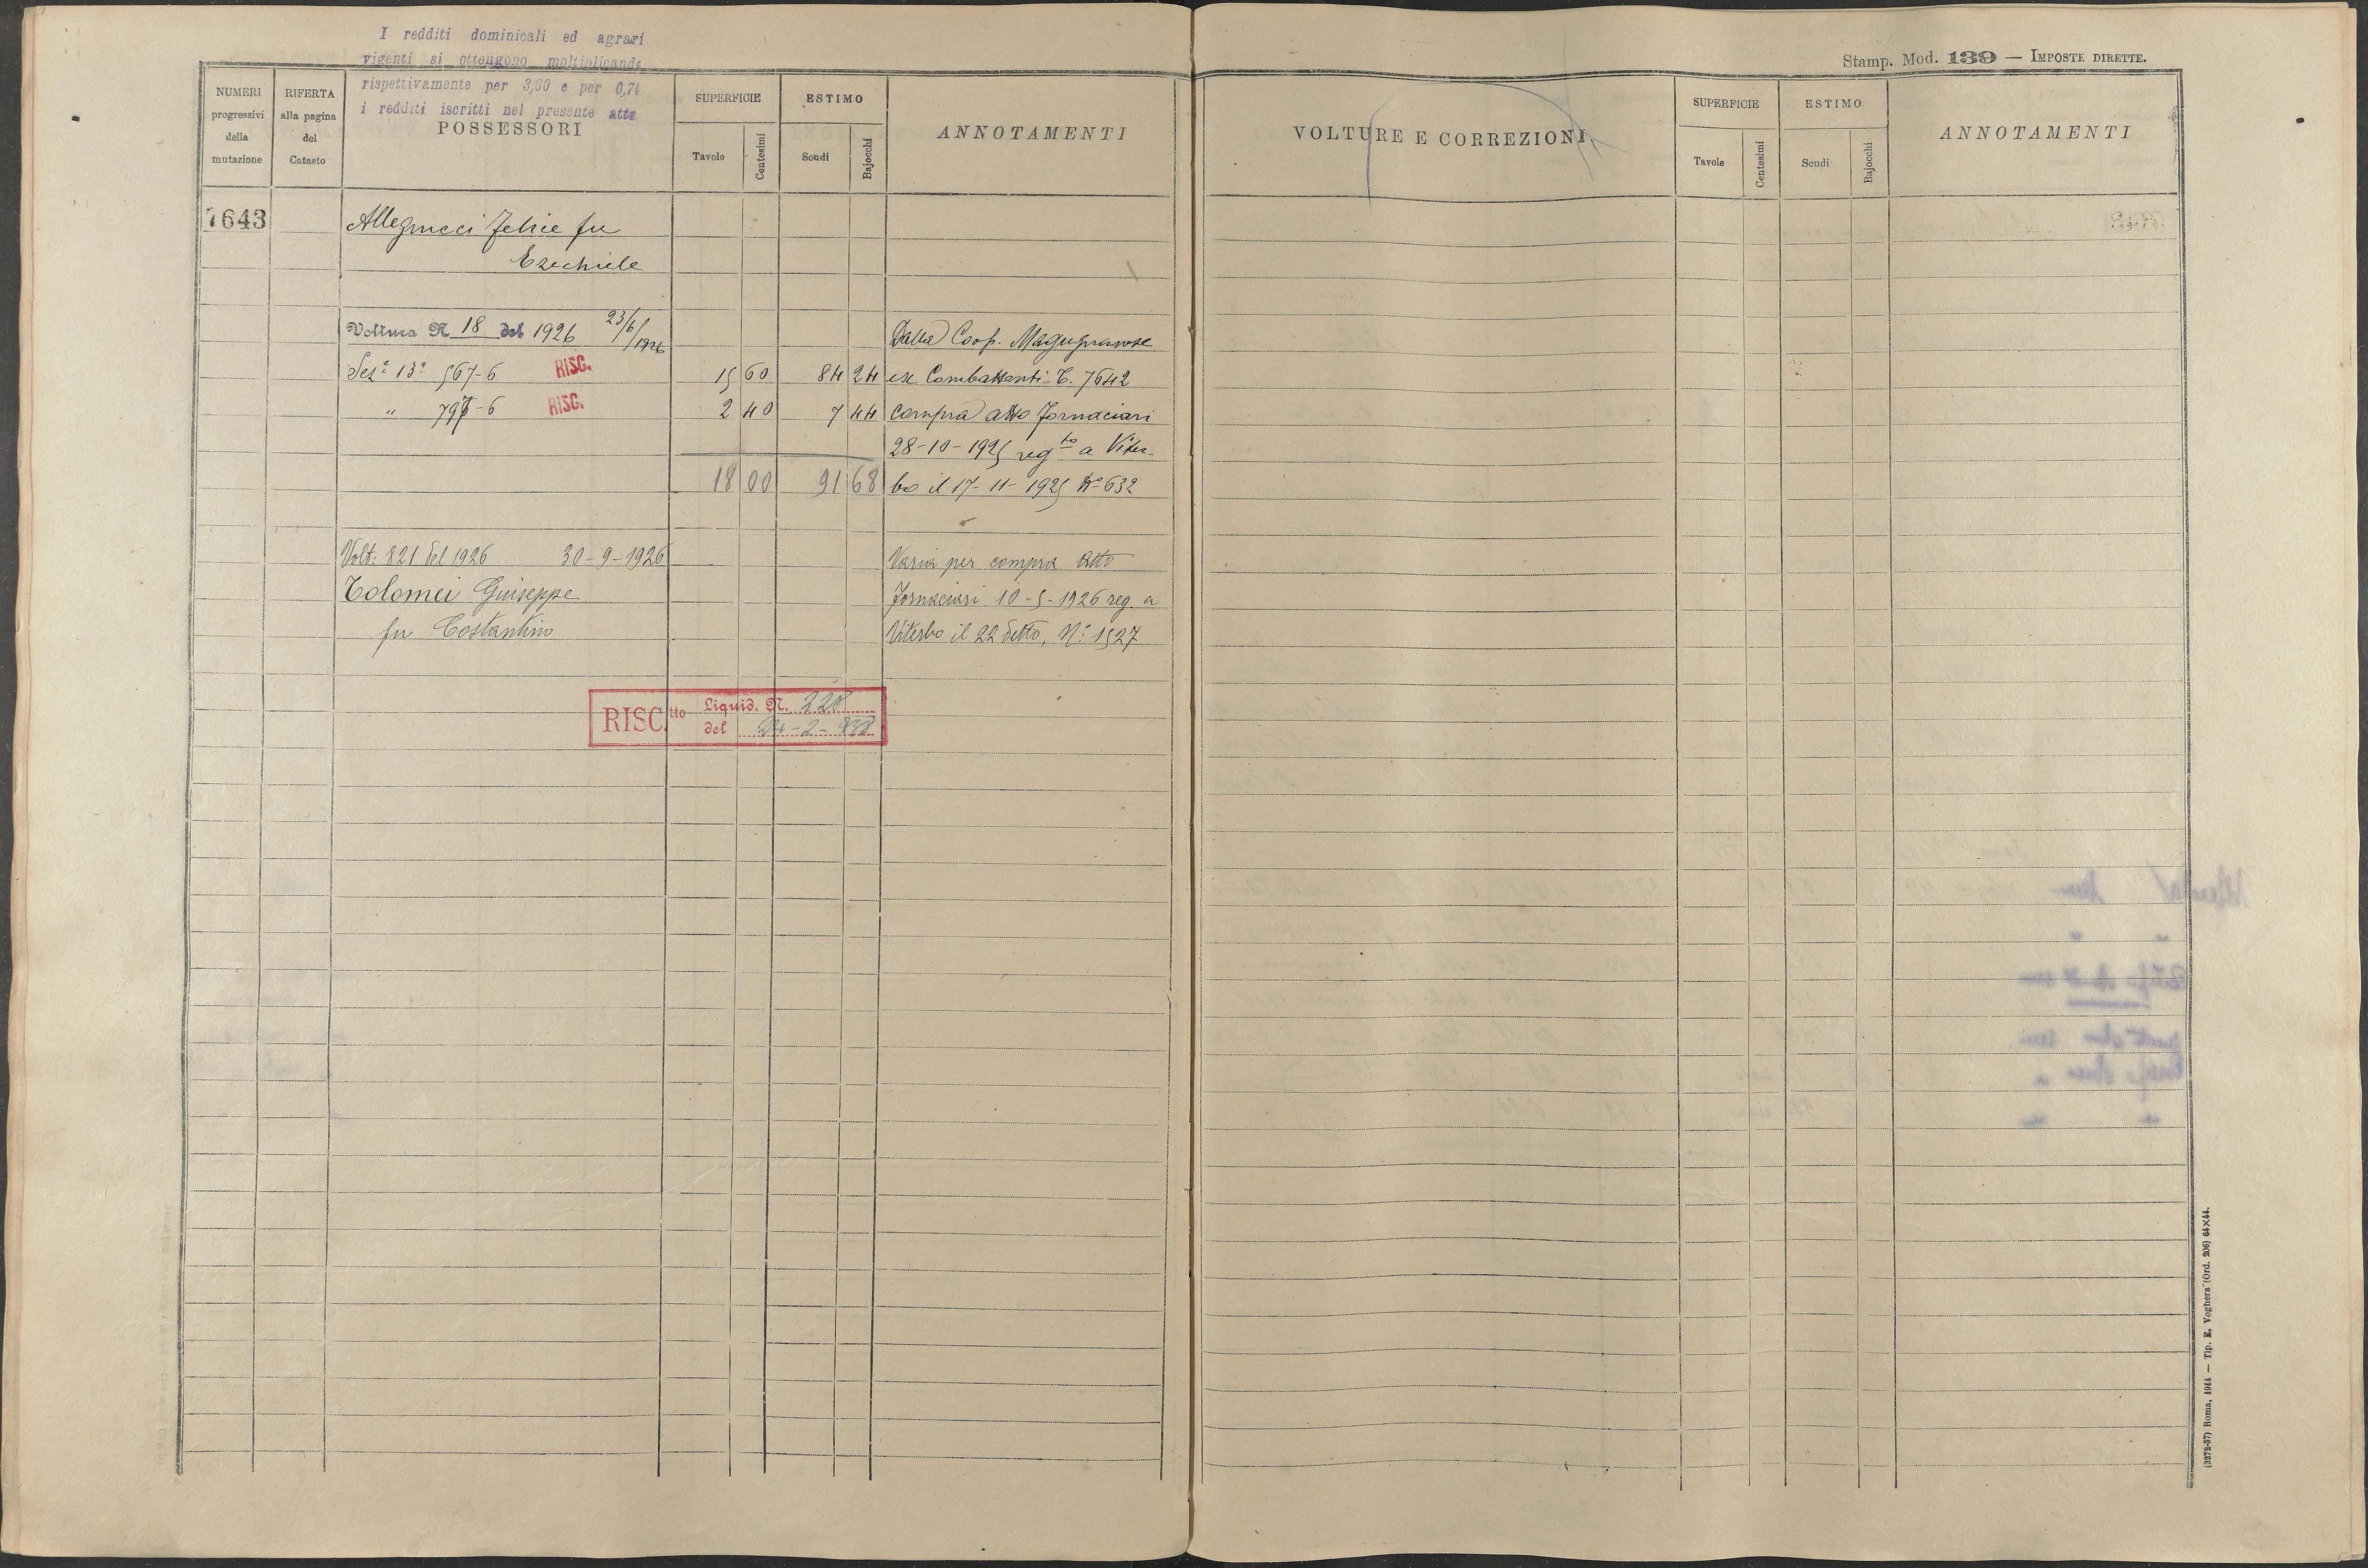 I redditi dominicali ed agrari
vigenti si ottengono moltiplicando
rispettivamente per 3,60 e per 0,7
i redditi iscritti nel presente atto
NUMERI progressivi della mutazione
RIFERTA alla pagina del Catasto
POSSESSORI
SUPERFICIE
Tavole
Centesimi
ESTIMO
Scudi
Bajocchi
ANNOTAMENTI
7643
Allegrucci Felice fu
Ezechiele
Voltura N 18 del 1926 23/6/1926
Dalla Coop. Magugnanese
Sez.e 13a 567-6 RISC. 15 60 84 24 ex Combattenti C. 7642
" 797-6 RISC. 2 40 7 44 compra atto Fornaciari
28-10-1925 regto a Viter-
18 00 91 68 bo il 17-11-1925 No 632
Volt: 821 del 1926 30-9-1926 Varia per compra atto
Tolomei Giuseppe Fornaciari 10-5-1926 reg. a
fu Costantino Viterbo il 22 detto, No 1527
RISC.tto Liquid. N. 228
del 24-2-938
Stamp. Mod. 139 — IMPOSTE DIRETTE.
VOLTURE E CORREZIONI
SUPERFICIE
Tavole
Centesimi
ESTIMO
Scudi
Bajocchi
ANNOTAMENTI
(3272-57) Roma, 1914 — Tip. E. Voghera (Ord. 206) 64×44.